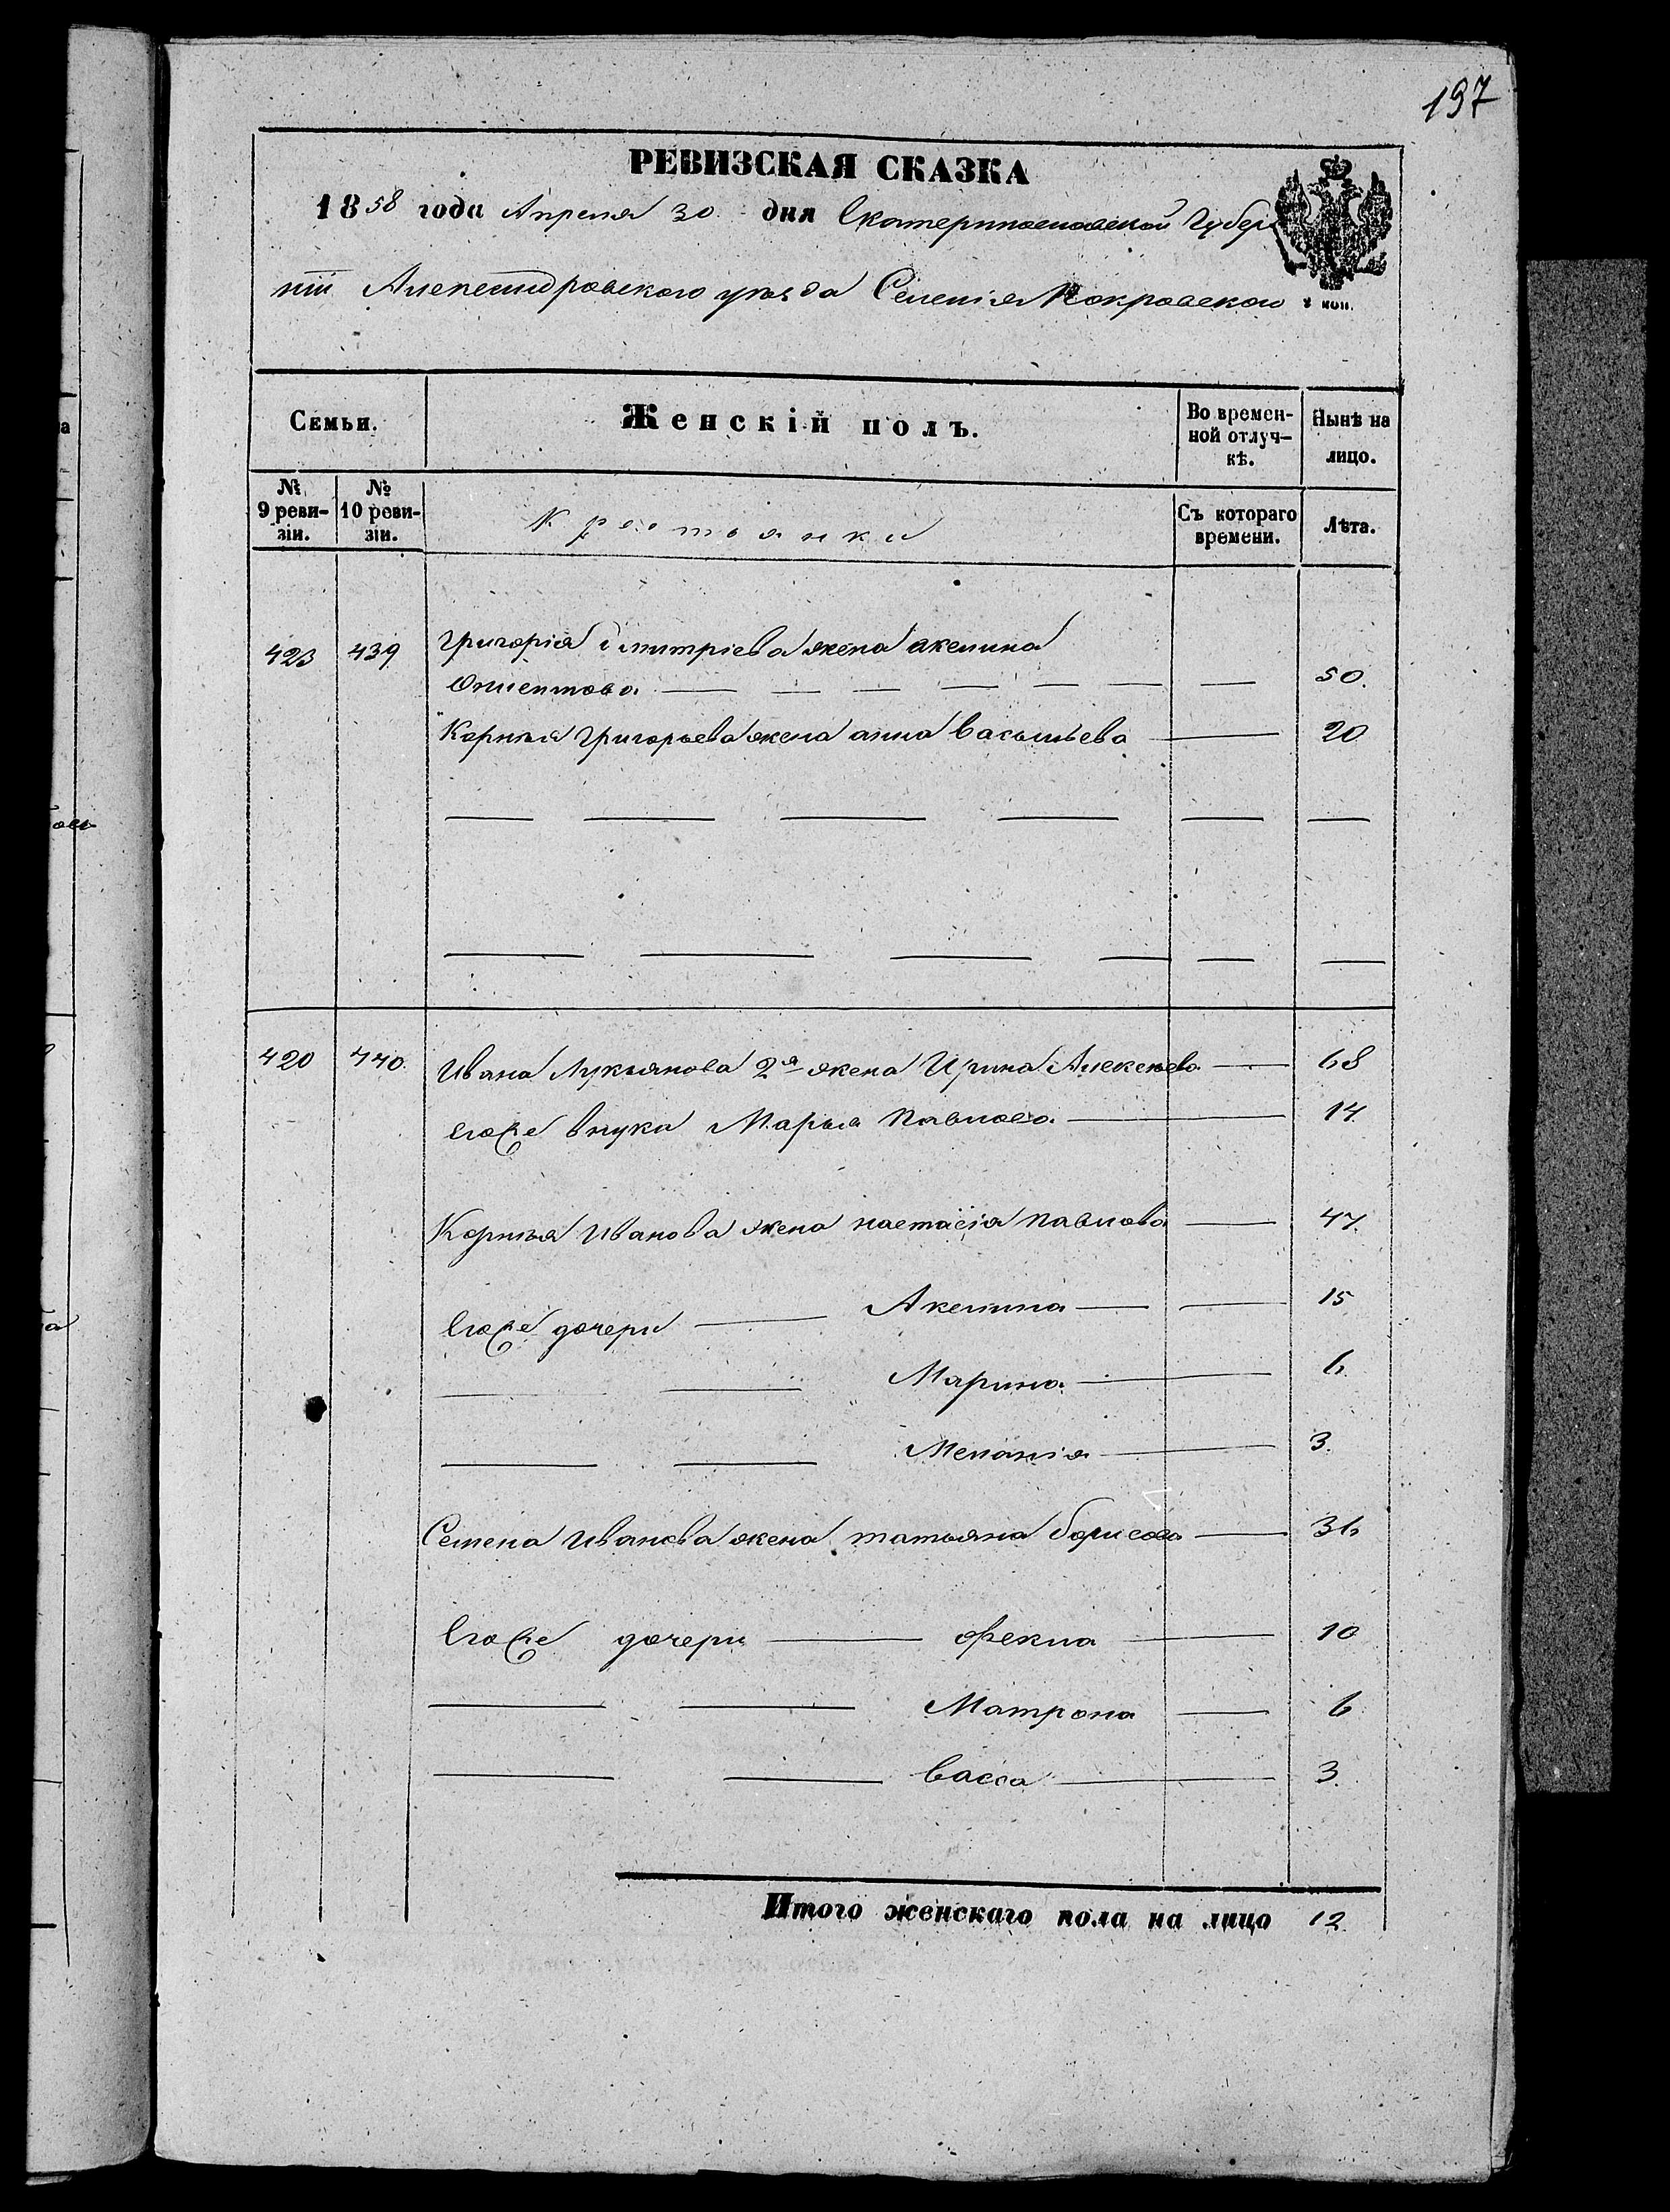 197
РЕВИЗСКАЯ СКАЗКА
1858 года Апреля 30 дня Екатеринославской Губер
ніи Александровского уезда Селенія Покровского
3 коп.
Семьи. Женскій полъ. Во времен- Нынѣ на
ной отлуч- лицо.
кѣ.
№ № Крестьянки Съ котораго Лѣта.
9 реви- 10 реви- времени.
зіи. зіи.
423 439 Григорія Дмитріева жена акелина
50.
Корнѣя Григорьева жена анна васильева 20
420 440. Ивана Лукьянова 2я жена Ирина Алексеева 68
егоже внука Марья павлова 14.
Корнѣя Иванова жена настасія павлова 47.
Егоже дочери Акелина 15
Марина 6.
Меланія 3.
Семена Иванова жена татьяна борисова 36
Егоже дочери фекла 10
Матрона 6
васса 3.
Итого женскаго пола на лицо 12.